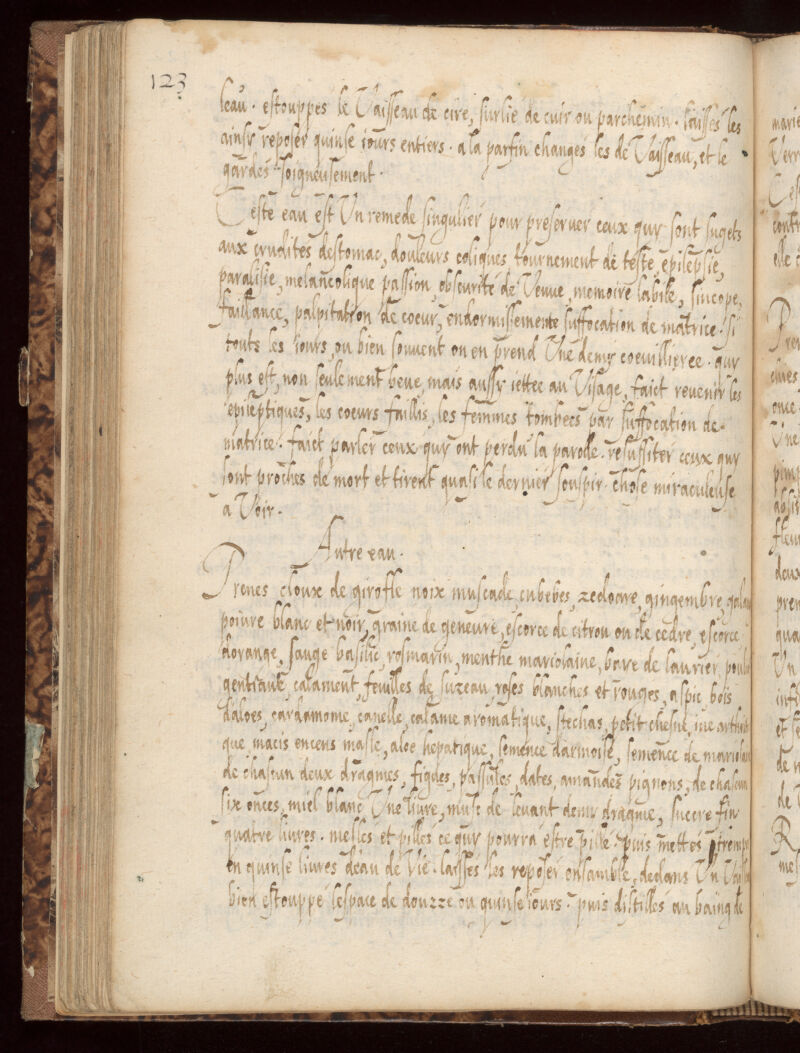 123
leau. estouppes le Vaisseau de cire, surlié de cuir ou parchemin. laisses les
ainsy reposer quinse iours entiers. a la parfin changes les de Vaisseau, et le
gardes soigneusement.
Ceste eau est Vn remede singulier pour preseruer ceux quy sont sugets
aux crudites destomac, douleurs coliques tournement de teste, epilepsie,
paralisie, melancolique passion, obscurité de Veuue, memoire labile, sincope,
faillance, palpitation de coeur, endormissemente suffocation de matrice. si
touts les iours, ou bien souuent on en prend Vne demy coeuillieree. quy
plus est, non seulement beue, mais aussy iettee au Visage, faict reuenir les
epileptiques, les coeurs faillis, les femmes tombees par suffocation de
matrice. faict parler ceux quy ont perdu la parolle. resussiter ceux quy
sont proches de mort et tirent quasi le dernier souspir. chose miraculeuse
a Voir.
Autre eau.
Prenes cloux de girofle noix muscade, cubebes, zedoare, gingembre,
poiure blanc et noir, graine de geneure, escorce de citron ou de cedre, escorce
dorange, sauge basilic, rosmarin, menthe mariolaine, baye de laurier,
gentiane, calament, feuilles de suzeau, roses blanches et rouges, aspic bois
daloes, cardamome, canelle, calame aromatique, stechas, petit chesne, iue
que, macis encens masle, aloe hepatique, semence darmoise, semence de
de chascun deux dragmes, figues, passules, dates, amandes pignons, de chascun
six onces, miel blanc Vne liure, musc de leuant demy dragme, succre fin
quatre liures. mesles et pilles ce quy pourra estre pillé. puis mettes
en quinse liures deau de Vie. laisses les reposer onsamble, dedans Vn
bien estouppé lespace de douzze ou quinse iours. puis distilles au baing de